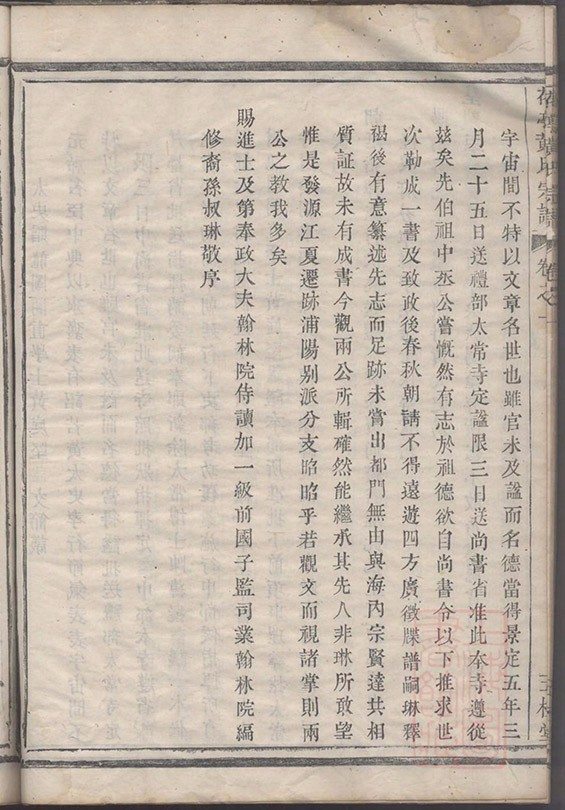 黃氏宗譜 卷之一
宇宙間不特以文章名世也雖官未及諡而名德當得景定五年三
月二十五日送禮部太常寺定諡限三日送尚書省准此本寺遵從
茲矣先伯祖中丞公嘗慨然有志於祖德欲自尚書令以下推求世
次勒成一書及致政後春秋朝請不得遠遊四方廣徵牒譜嗣琳釋
褐後有意纂述先志而足跡未嘗出都門無由與海內宗賢達共相
質証故未有成書今觀兩公所輯確然能繼承其先人非琳所敢望
惟是發源江夏遷跡浦陽别派分支昭昭乎若觀文而視諸掌則兩
公之教我多矣
賜進士及第奉政大夫翰林院侍讀加一級前國子監司業翰林院編
修裔孫叔琳敬序